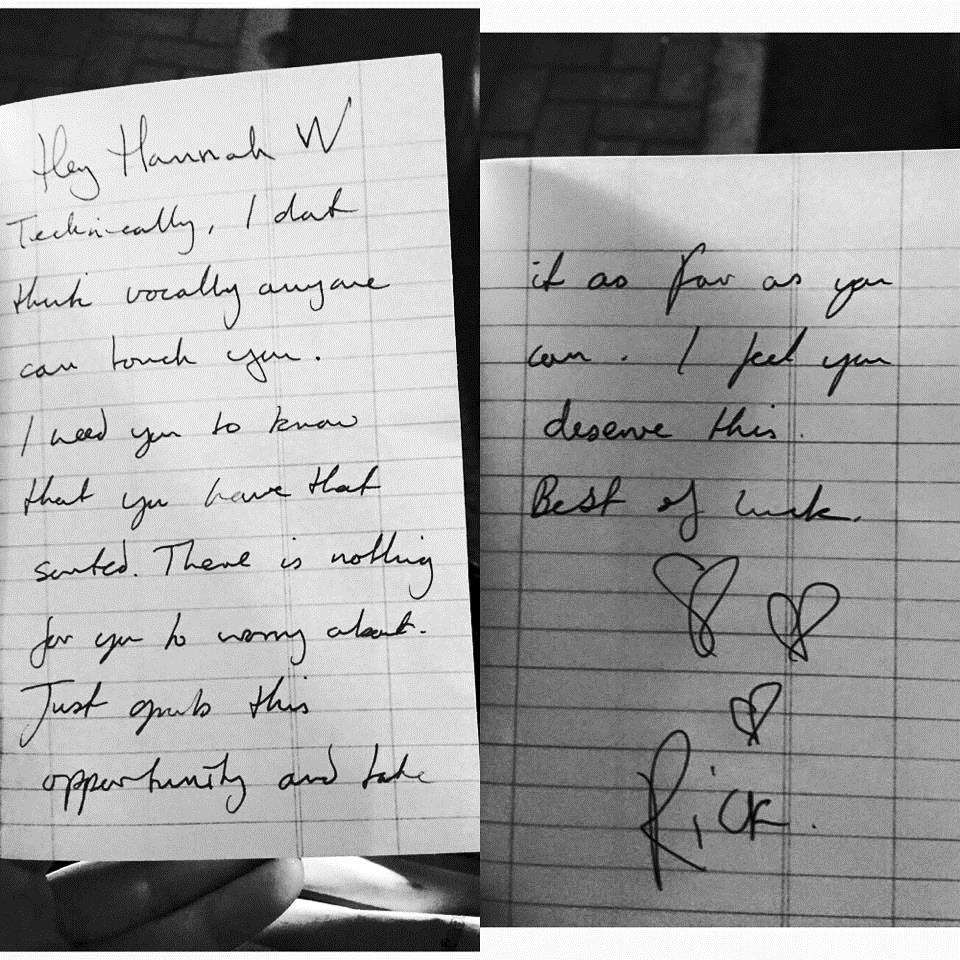 Hey Hannah W
Technically, I dont
think vocally anyone
can touch you.
I need you to know
that you have that
sorted. There is nothing
for you to worry about.
Just grab this
opportunity and take
it as far as you
can. I feel you
deserve this.
Best of luck.
Rick.